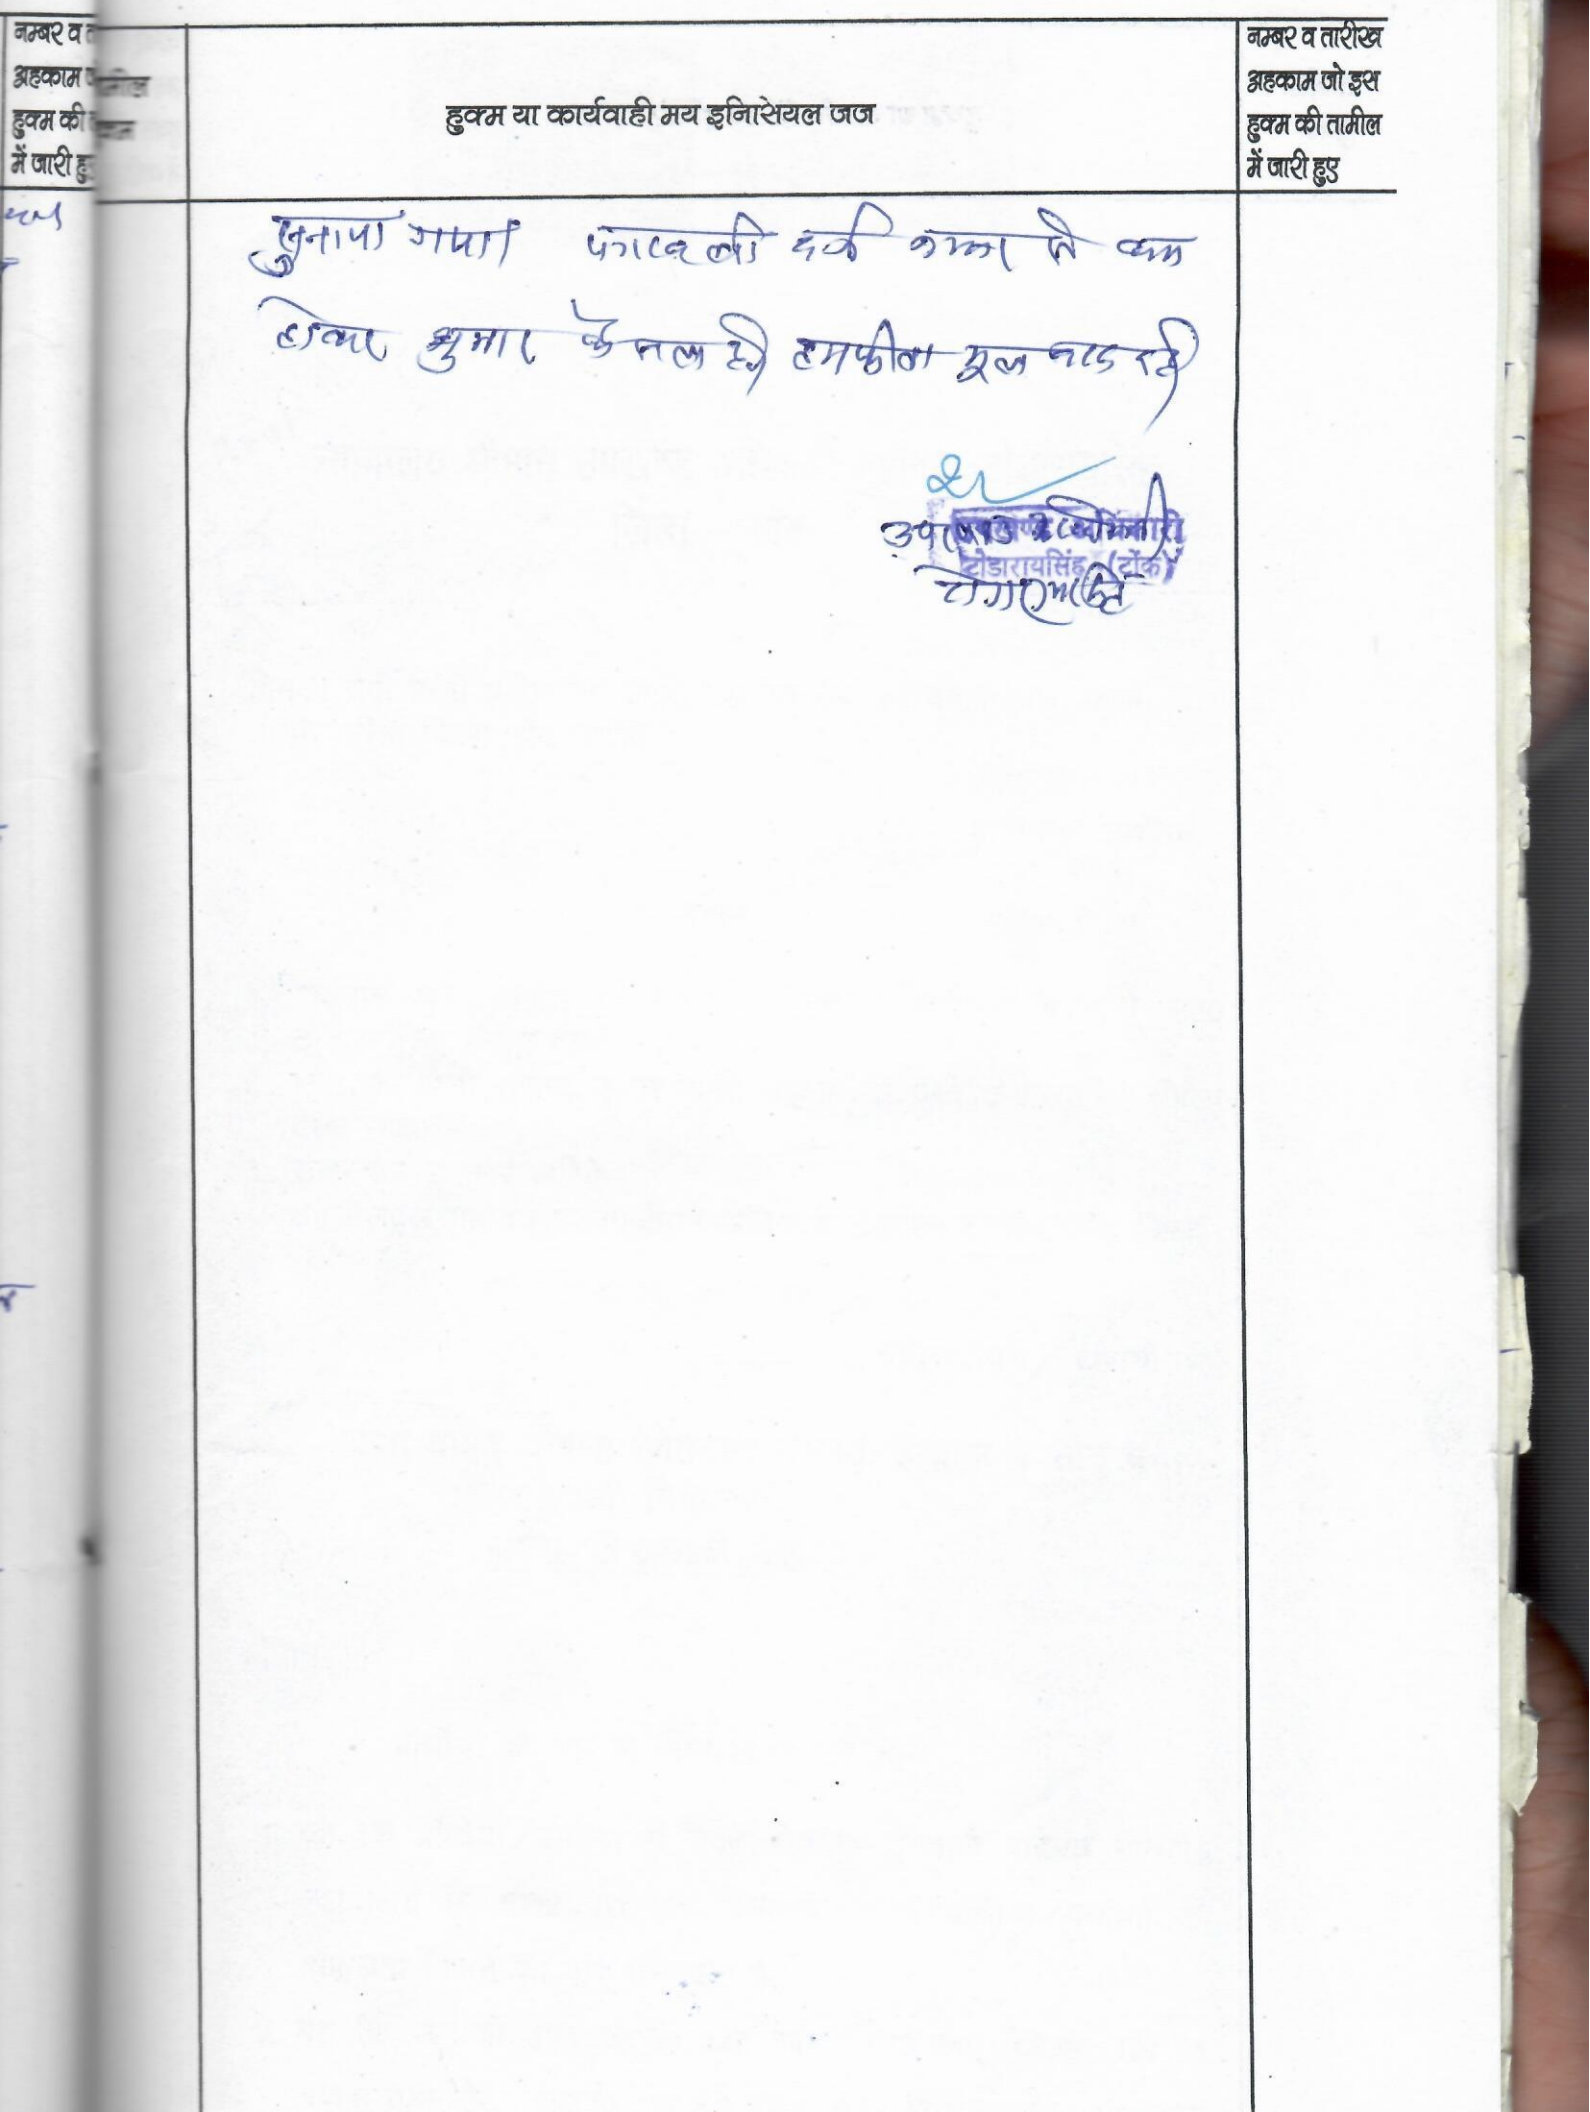 नम्बर व
अहकाम
हुक्म की
में जारी हुए
हुक्म या कार्यवाही मय इनिसियल जज
नम्बर व तारीख
अहकाम जो इस
हुक्म की तामील
में जारी हुए
सुनाया गया। पत्रावली दर्ज नम्बर से कम
होकर शुमार फैसल हो
उपखण्ड अधिकारी
उपखण्ड अधिकारी
टोडारायसिंह (टोंक)
टोडारायसिंह